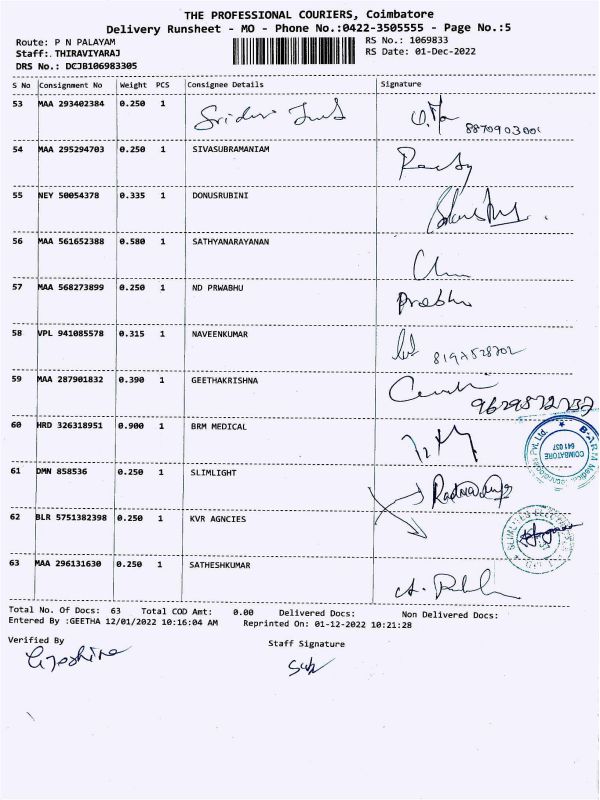 THE PROFESSIONAL COURIERS, Coimbatore
Delivery Runsheet - MO - Phone No.:0422-3505555 - Page No.:5
Route: P N PALAYAM RS No.: 1069833
Staff: THIRAVIYARAJ RS Date: 01-Dec-2022
DRS No.: DCJB106983305
S No Consignment No Weight PCS Consignee Details Signature
53 MAA 293402384 0.250 1
8870903001
54 MAA 295294703 0.250 1 SIVASUBRAMANIAM
55 NEY 50054378 0.335 1 DONUSRUBINI
56 MAA 561652388 0.580 1 SATHYANARAYANAN
57 MAA 568273899 0.250 1 ND PRWABHU
Prabhu
58 VPL 941085578 0.315 1 NAVEENKUMAR
59 MAA 287901832 0.390 1 GEETHAKRISHNA
60 HRD 326318951 0.900 1 BRM MEDICAL
COIMBATORE
641 037
61 DMN 858536 0.250 1 SLIMLIGHT
62 BLR 5751382398 0.250 1 KVR AGNCIES
63 MAA 296131630 0.250 1 SATHESHKUMAR
Total No. Of Docs: 63 Total COD Amt: 0.00 Delivered Docs: Non Delivered Docs:
Entered By :GEETHA 12/01/2022 10:16:04 AM Reprinted On: 01-12-2022 10:21:28
Verified By Staff Signature